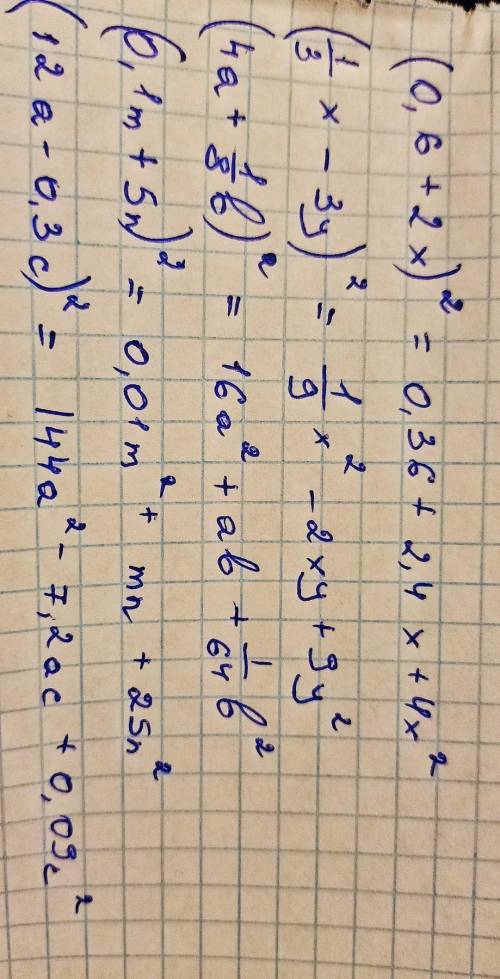 (0,6 + 2x)² = 0,36 + 2,4x + 4x²
(1/3 x - 3y)² = 1/9 x² - 2xy + 9y²
(4a + 1/8 b)² = 16a² + ab + 1/64 b²
(0,1m + 5n)² = 0,01m² + mn + 25n²
(12a - 0,3c)² = 144a² - 7,2ac + 0,09c²